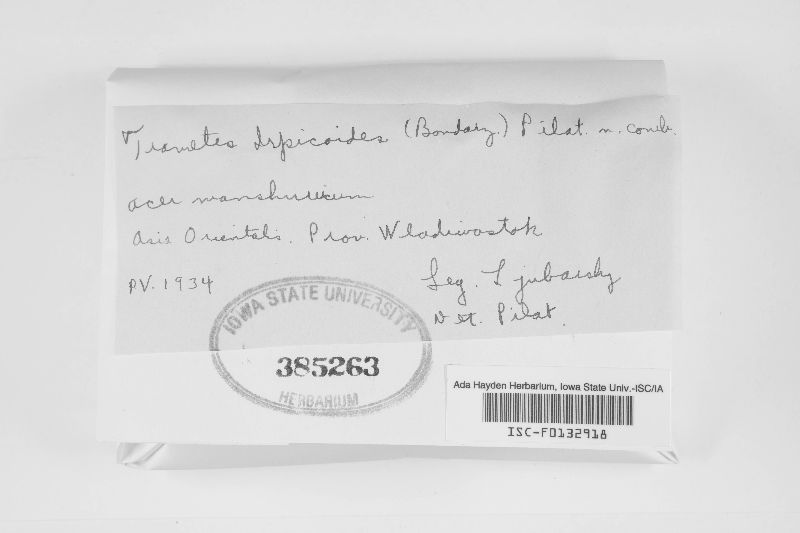 Trametes Irpicoides (Bondarz.) Pilat. n. comb.
acer manshuricum
Asia Orientalis. Prov. Wladiwostok
PV. 1934
Leg. Ljubarsky
Det. Pilat.
IOWA STATE UNIVERSITY
385263
HERBARIUM
Ada Hayden Herbarium, Iowa State Univ.-ISC/IA
ISC-F0132918